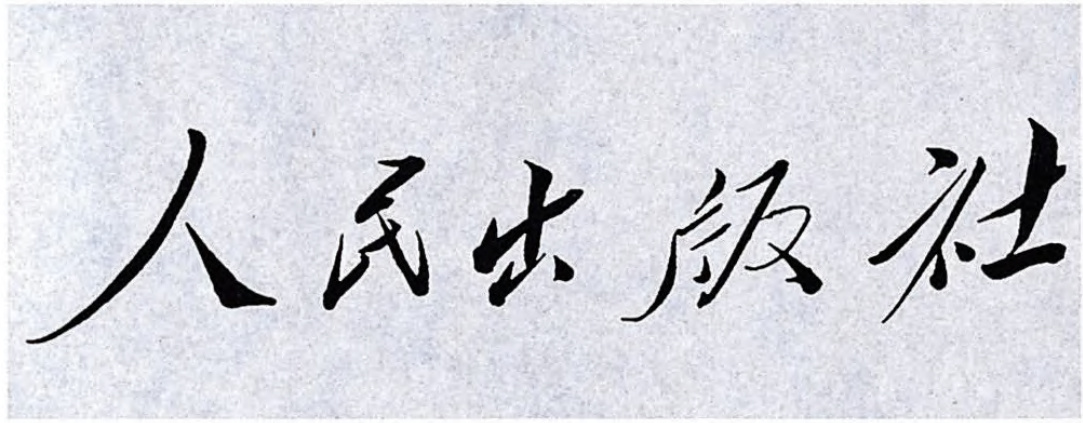 人民出版社